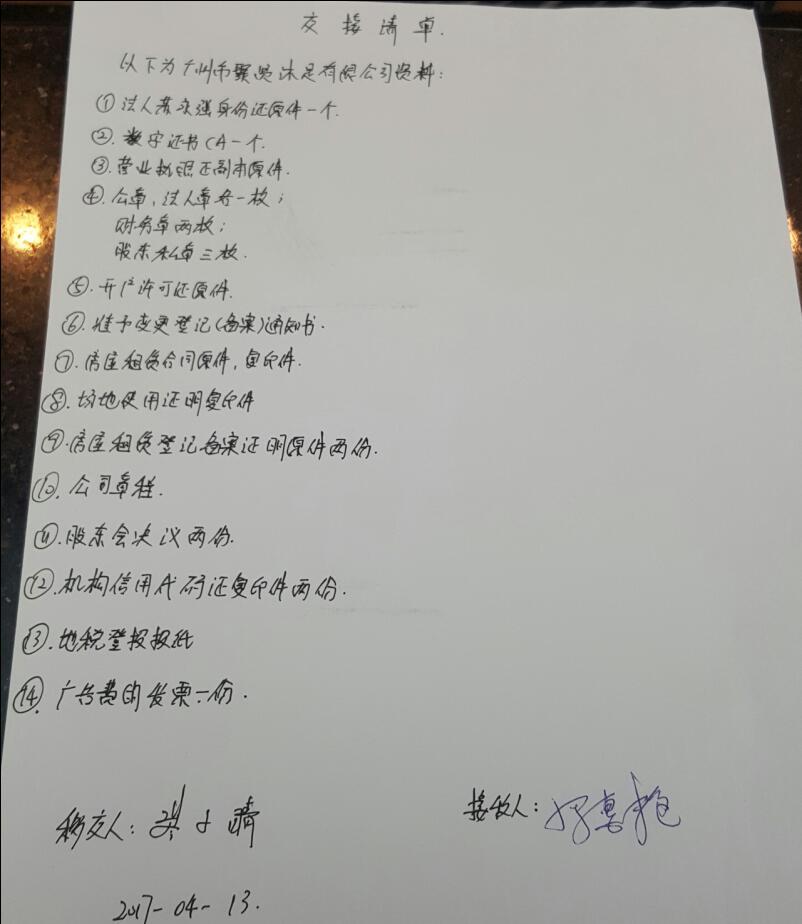 交接清单.
以下为广州市聚贤沐足有限公司资料:
①法人黄永强身份证原件一个.
②.数字证书CA一个.
③.营业执照正副本原件.
④.公章,法人章各一枚;
财务章两枚;
股东私章三枚.
⑤.开户许可证原件.
⑥.准予变更登记(备案)通知书.
⑦.房屋租赁合同原件,复印件.
⑧.场地使用证明复印件
⑨.房屋租赁登记备案证明原件两份.
⑩.公司章程.
⑪.股东会决议两份.
⑫.机构信用代码证复印件两份.
⑬.地税登报报纸
⑭.广告费的发票一份.
移交人:
接收人:
2017-04-13.